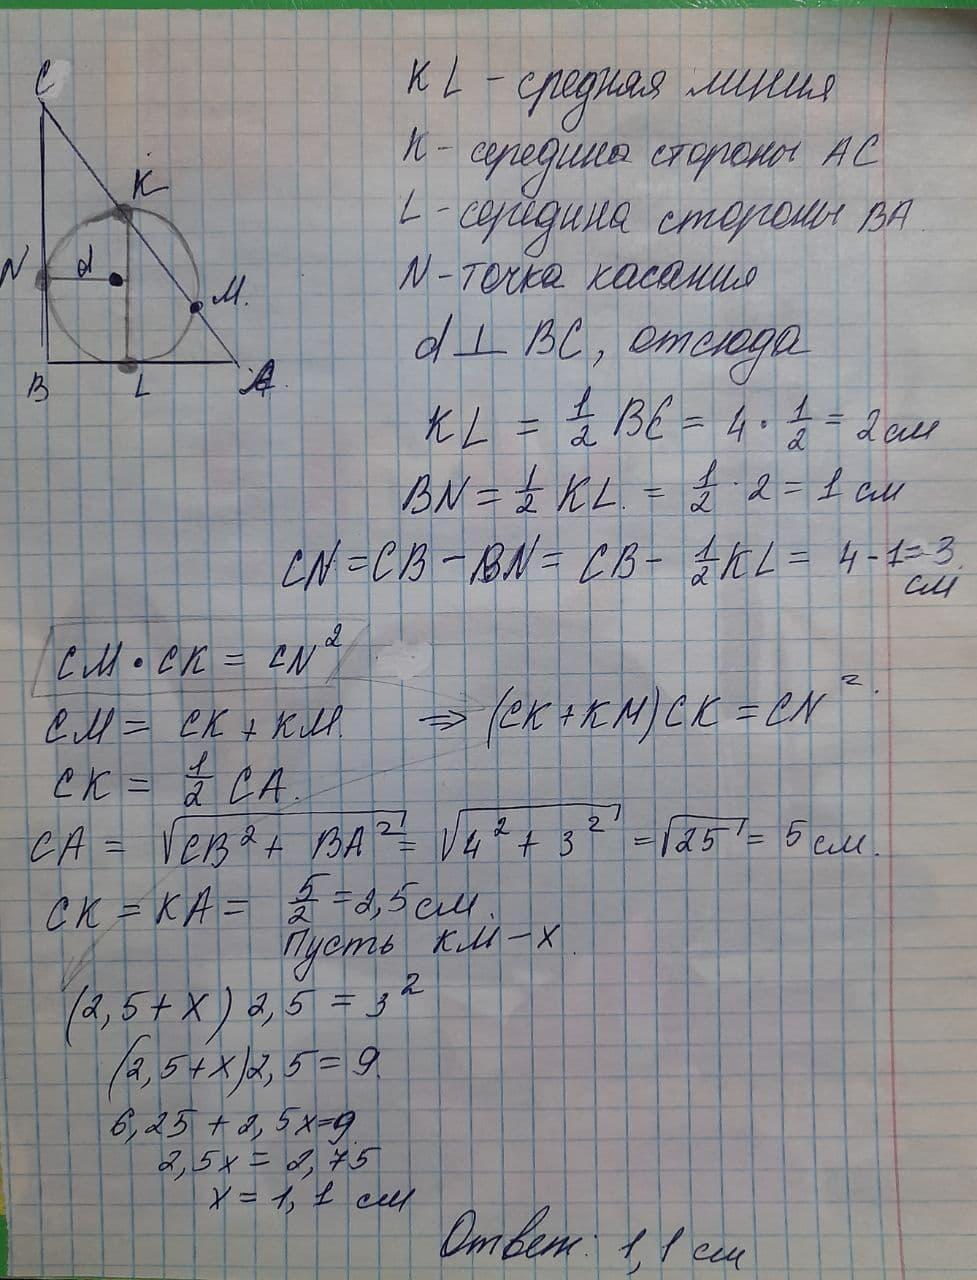 C
K
N
d
M.
B
L
A
KL - средняя линия
K - середина стороны AC
L - середина стороны BA.
N - точка касания
d ⊥ BC, отсюда
KL = 1/2 BC = 4 · 1/2 = 2 см
BN = 1/2 KL. = 1/2 · 2 = 1 см
CN = CB - BN = CB - 1/2 KL = 4 - 1 = 3 см
CM · CK = CN²
CM = CK + KM. ⇒ (CK + KM) CK = CN².
CK = 1/2 CA.
CA = √(CB² + BA²) = √(4² + 3²) = √25 = 5 см.
CK = KA = 5/2 = 2,5 см.
Пусть KM - x.
(2,5 + x) 2,5 = 3²
(2,5 + x) 2,5 = 9.
6,25 + 2,5x = 9.
2,5x = 2,75
x = 1,1 см
Ответ: 1,1 см